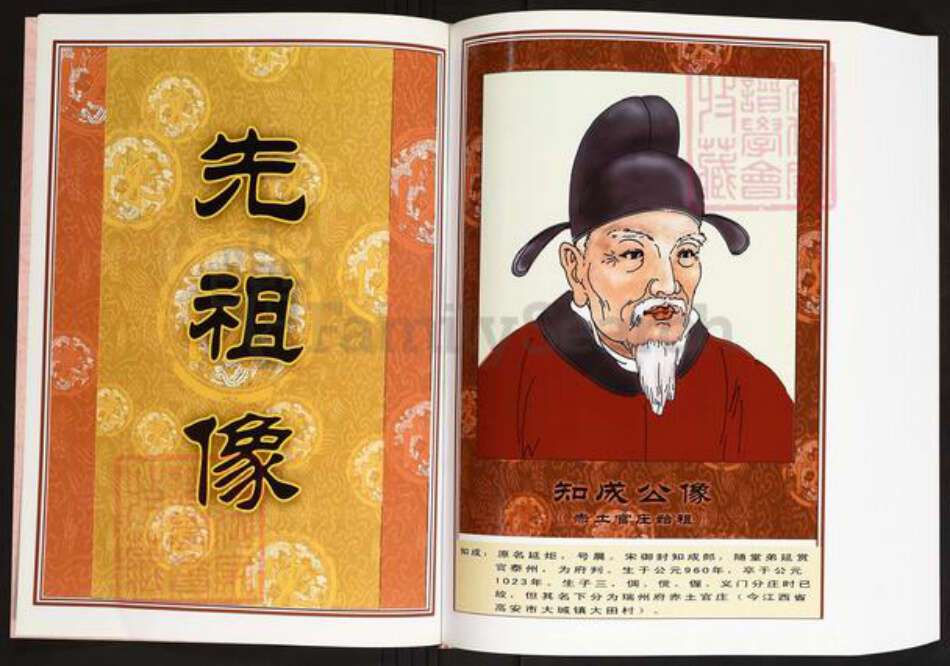 先祖像
知成公像
赤土官庄始祖
知成：原名延炬，号晨，宋御封知成郎，随堂弟延赏
官泰州，为府判，生于公元960年，卒于公元
1023年，生子三，俱、傥、偓，义门分庄时已
故，但其名下分为瑞州府赤土官庄（今江西省
高安市大城镇大田村）。
FamilySearch